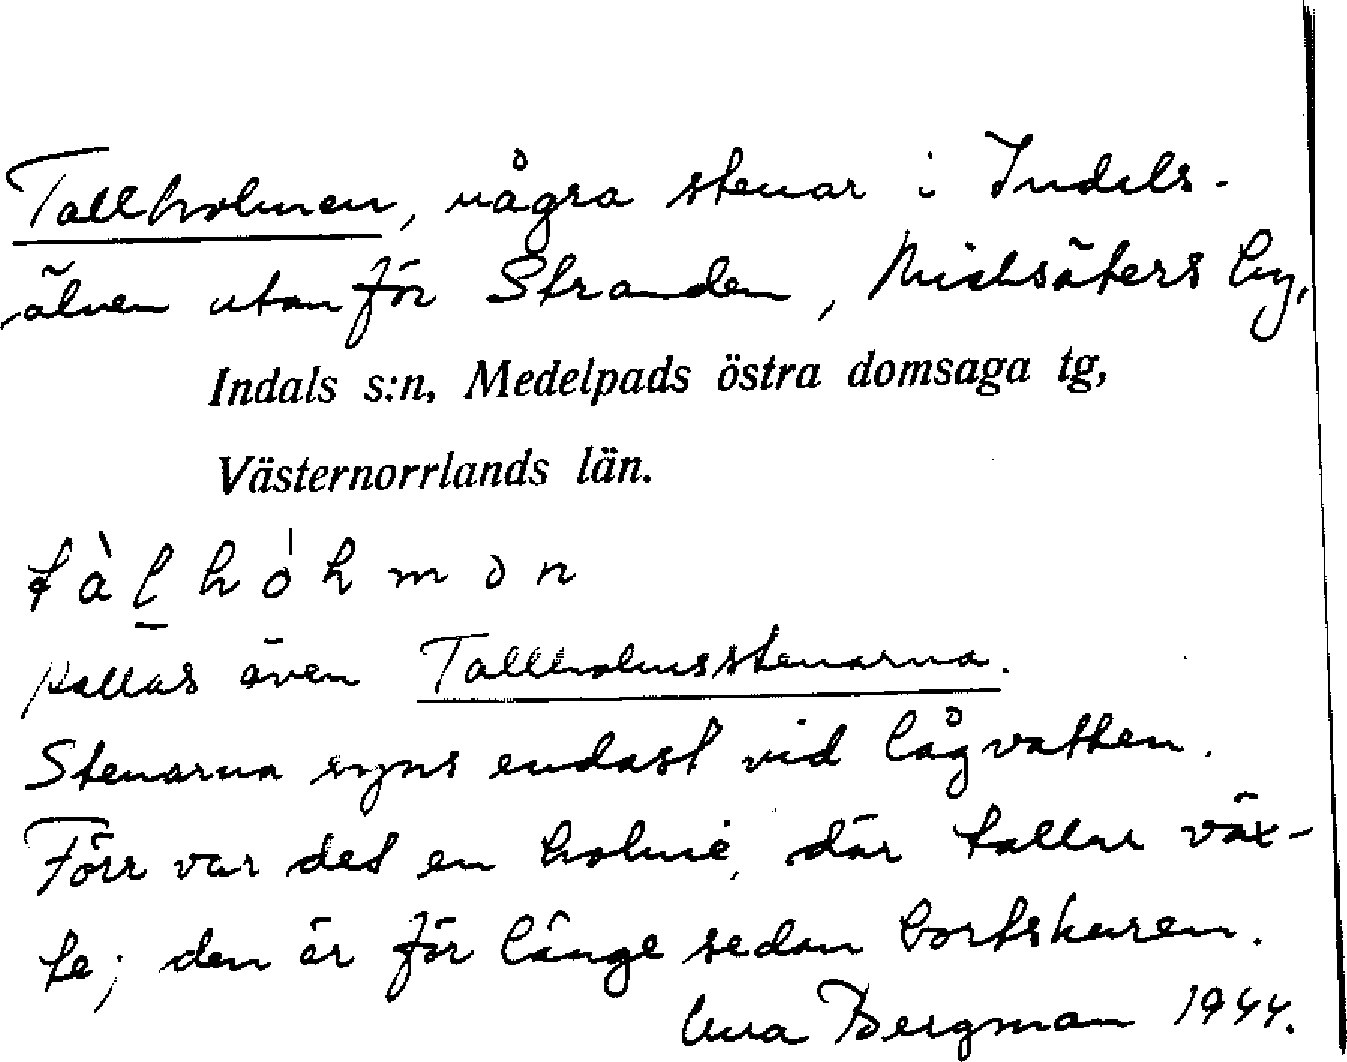 Tallholmen, några stenar i Indals-
älven utanför Stranden, Mjösäters by,
Indals s:n, Medelpads östra domsaga tg,
Västernorrlands län.
tàḷhóḷmən
kallas även Tallholmsstenarna.
Stenarna syns endast vid lågvatten.
Förr var det en holme, där tallar väx-
te; den är för länge sedan bortskuren.
Bergman 1944.